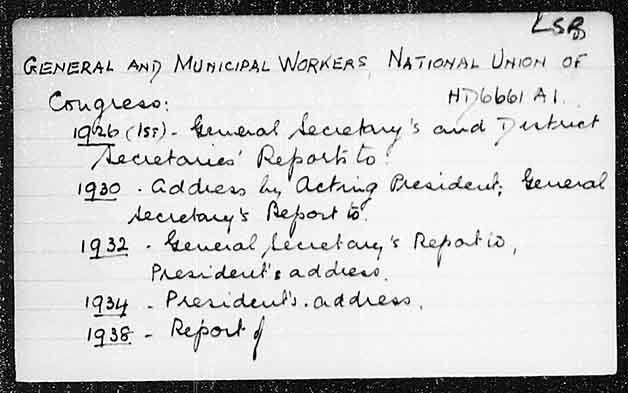 LSB
GENERAL AND MUNICIPAL WORKERS, NATIONAL UNION OF
Congress: HD6661 A1.
1926 (1st) - General Secretary's and District
Secretaries' Reports to.
1930 - Address by Acting President; General
Secretary's Report to.
1932 - General Secretary's Report to,
President's address.
1934 - President's address.
1938 - Report of